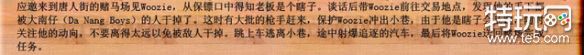 应邀来到唐人街的赌马场见Woozie，从保镖口中得知老板是个瞎子。谈话后带Woozie前往交易地点，发现
被大南仔（Da Nang Boys）的人干掉了，这时有大批的枪手赶来，保护Woozie冲出小巷，由于他是瞎子
关注他的动向，不要离得太远以免被敌人干掉。跳上车逃离小巷，途中射爆追逐的汽车，最后将Woozie送
任务。
特玩网